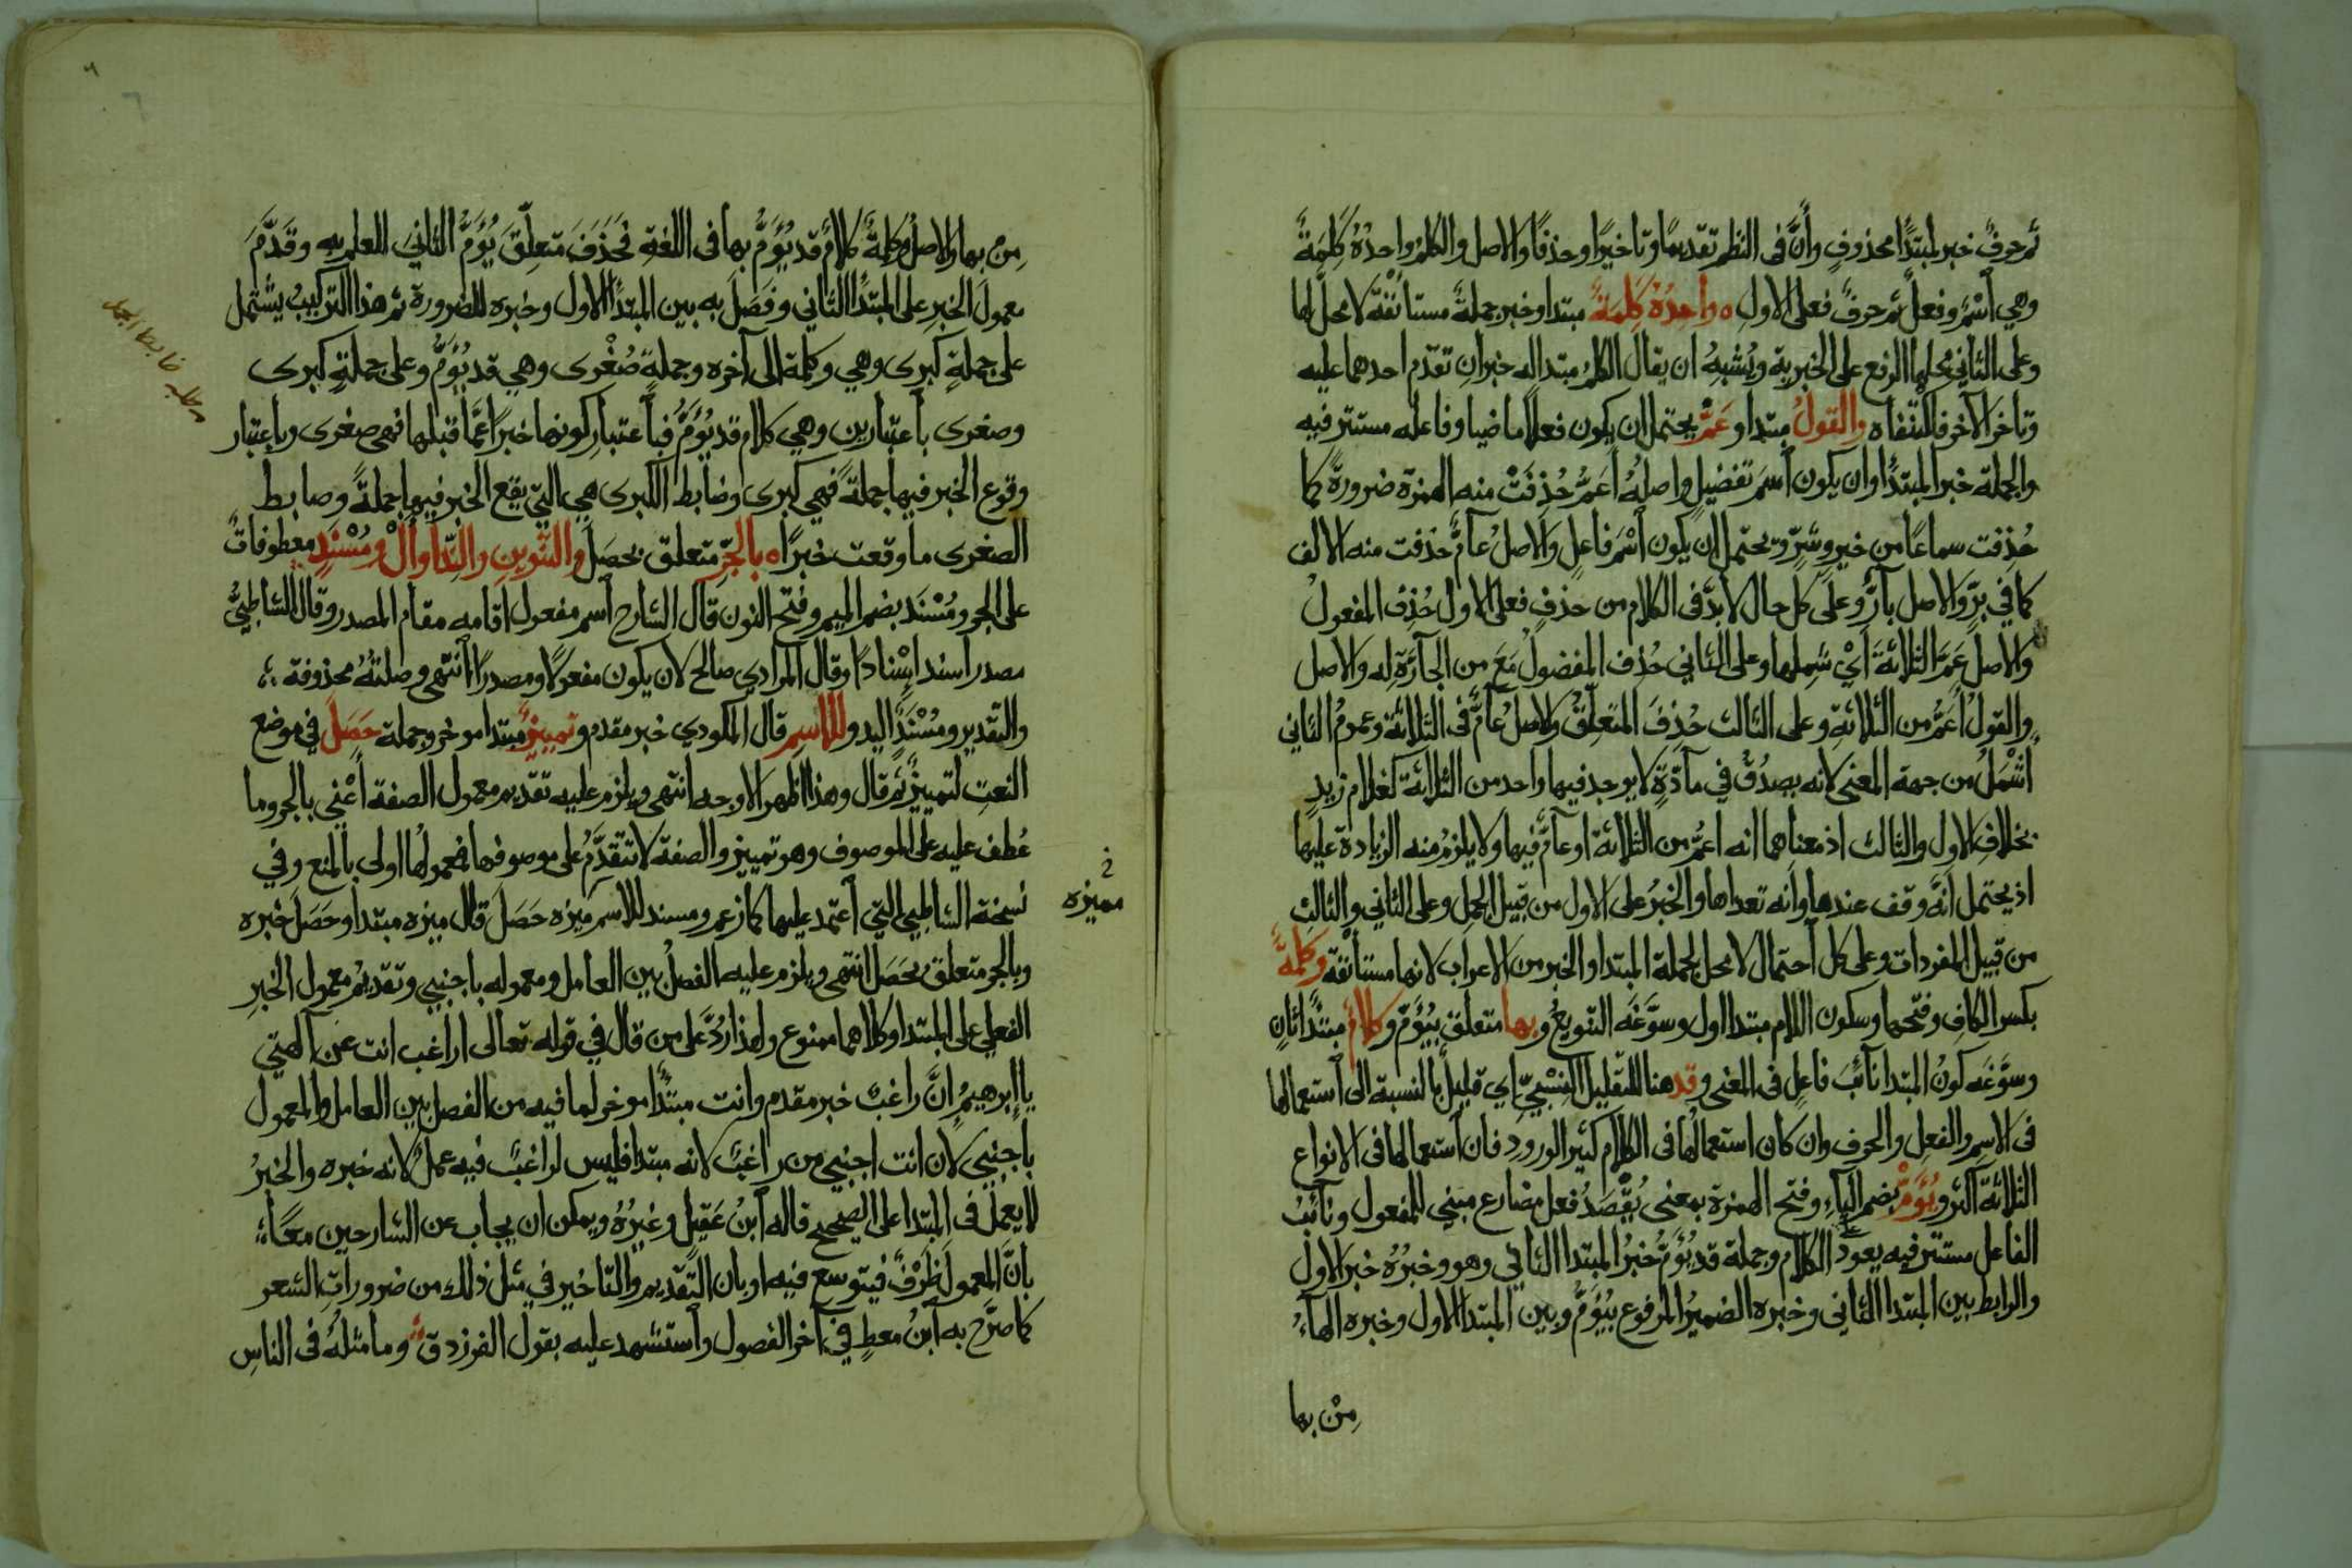 ثم حرف خبر لمبتدأ محذوف وأن في النظم تقديما وتأخيرا وحذفا والاصل والكلم واحده كلمة
وهي اسم وفعل ثم حرف فعلى الاول ه واحده كلمة مبتدا وخبر جملة مستأنفة لا محل لها
وعلى الثاني محلها الرفع على الخبرية ويشبه ان يقال الكلم مبتدا له خبران تقدم احدهما عليه
وتاخر الآخر فاكتنفاه والقول مبتدا وعم يحتمل ان يكون فعلا ماضيا وفاعله مستتر فيه
والجملة خبر المبتدأ وان يكون اسم تفضيل واصله أعم حذفت منه الهمزة ضرورة كما
حذفت سماعا من خير وشر ويحتمل ان يكون اسم فاعل والاصل عام حذفت منه الالف
كما في بر والاصل بار وعلى كل حال لا بد في الكلام من حذف فعلى الاول حذف المفعول
والاصل عم الثلاثة أي شملها وعلى الثاني حذف المفضول مع من الجارة له والاصل
والقول أعم من الثلاثة وعلى الثالث حذف المتعلق والاصل عام في الثلاثة وعموم الثاني
أشمل من جهة المعنى لانه يصدق في مادة لا يوجد فيها واحد من الثلاثة كغلام زيد
بخلاف الاول والثالث اذ معناهما انه اعم من الثلاثة او عام فيها ولا يلزم منه الزيادة عليها
اذ يحتمل انه وقف عندها وانه تعداها والخبر على الاول من قبيل الجمل وعلى الثاني والثالث
من قبيل المفردات وعلى كل احتمال لا محل لجملة المبتدا والخبر من الاعراب لانها مستأنفة وكلمة
بكسر الكاف وفتحها وسكون اللام مبتدا اول وسوغه التنويع وبها متعلق بيؤم وكلام مبتدأ ثان
وسوغه كون المبتدا نائب فاعل في المعنى وقد هنا للتقليل النسبي اي قليل بالنسبة الى استعمالها
في الاسم والفعل والحرف وان كان استعمالها في الكلام كثير الورود فان استعمالها في الانواع
الثلاثة اكثر ويؤم بضم الياء وفتح الهمزة بمعنى يقصد فعل مضارع مبني للمفعول ونائب
الفاعل مستتر فيه يعود على الكلام وجملة قد يؤم خبر المبتدا الثاني وهو وخبره خبر الاول
والرابط بين المبتدا الثاني وخبره الضمير المرفوع بيؤم وبين المبتدا الاول وخبره الهاء
من بها
من بها والاصل وكلمة كلام قد يؤم بها في اللغة فحذف متعلق يؤم الثاني للعلم به وقدم
معمول الخبر على المبتدأ الثاني وفصل به بين المبتدأ الاول وخبره للضرورة ثم هذا التركيب يشتمل
على جملة كبرى وهي وكلمة الى آخره وجملة صغرى وهي قد يؤم وعلى جملة كبرى
وصغرى باعتبارين وهي كلام قد يؤم فباعتبار كونها خبرا عما قبلها فهي صغرى وباعتبار
وقوع الخبر فيها جملة فهي كبرى وضابط الكبرى هي التي يقع الخبر فيها جملة وضابط
الصغرى ما وقعت خبرا ه بالجر متعلق بحصل والتنوين والندا وأل ومسند معطوفات
على الجر ومسند بضم الميم وفتح النون قال الشارح اسم مفعول اقامه مقام المصدر وقال الشاطبي
مصدر اسند إسنادا وقال المرادي صالح لان يكون مفعولا ومصدرا انتهى وصلته محذوفة
والتقدير ومسند اليه وللاسم قال المكودي خبر مقدم وتمييز مبتدا موخر وجملة حصل في موضع
النعت لتمييز ثم قال وهذا اظهر الاوجه انتهى ويلزم عليه تقديم معمول الصفة أعني بالجر وما
عطف عليه على الموصوف وهو تمييز والصفة لا تتقدم على موصوفها فمعمولها اولى بالمنع وفي
نسخة الشاطبي التي اعتمد عليها كما زعم ومسند للاسم ميزه حصل قال ميزه مبتدا وحصل خبره
وبالجر متعلق بحصل انتهى ويلزم عليه الفصل بين العامل ومعموله باجنبي وتقديم معمول الخبر
الفعلي على المبتدا وكلاهما ممنوع ولهذا رد على من قال في قوله تعالى اراغب انت عن آلهتي
يا إبرهيم إن راغب خبر مقدم وانت مبتدأ موخر لما فيه من الفصل بين العامل والمعمول
باجنبي لان انت اجنبي من راغب لانه مبتدا فليس لراغب فيه عمل لانه خبره والخبر
لا يعمل في المبتدا على الصحيح قاله ابن عقيل وغيره ويمكن ان يجاب عن الشارحين معا
بان المعمول ظرف فيتوسع فيه او بان التقديم والتاخير في مثل ذلك من ضرورات الشعر
كما صرح به ابن معط في آخر الفصول واستشهد عليه بقول الفرزدق وما مثله في الناس
مميزه